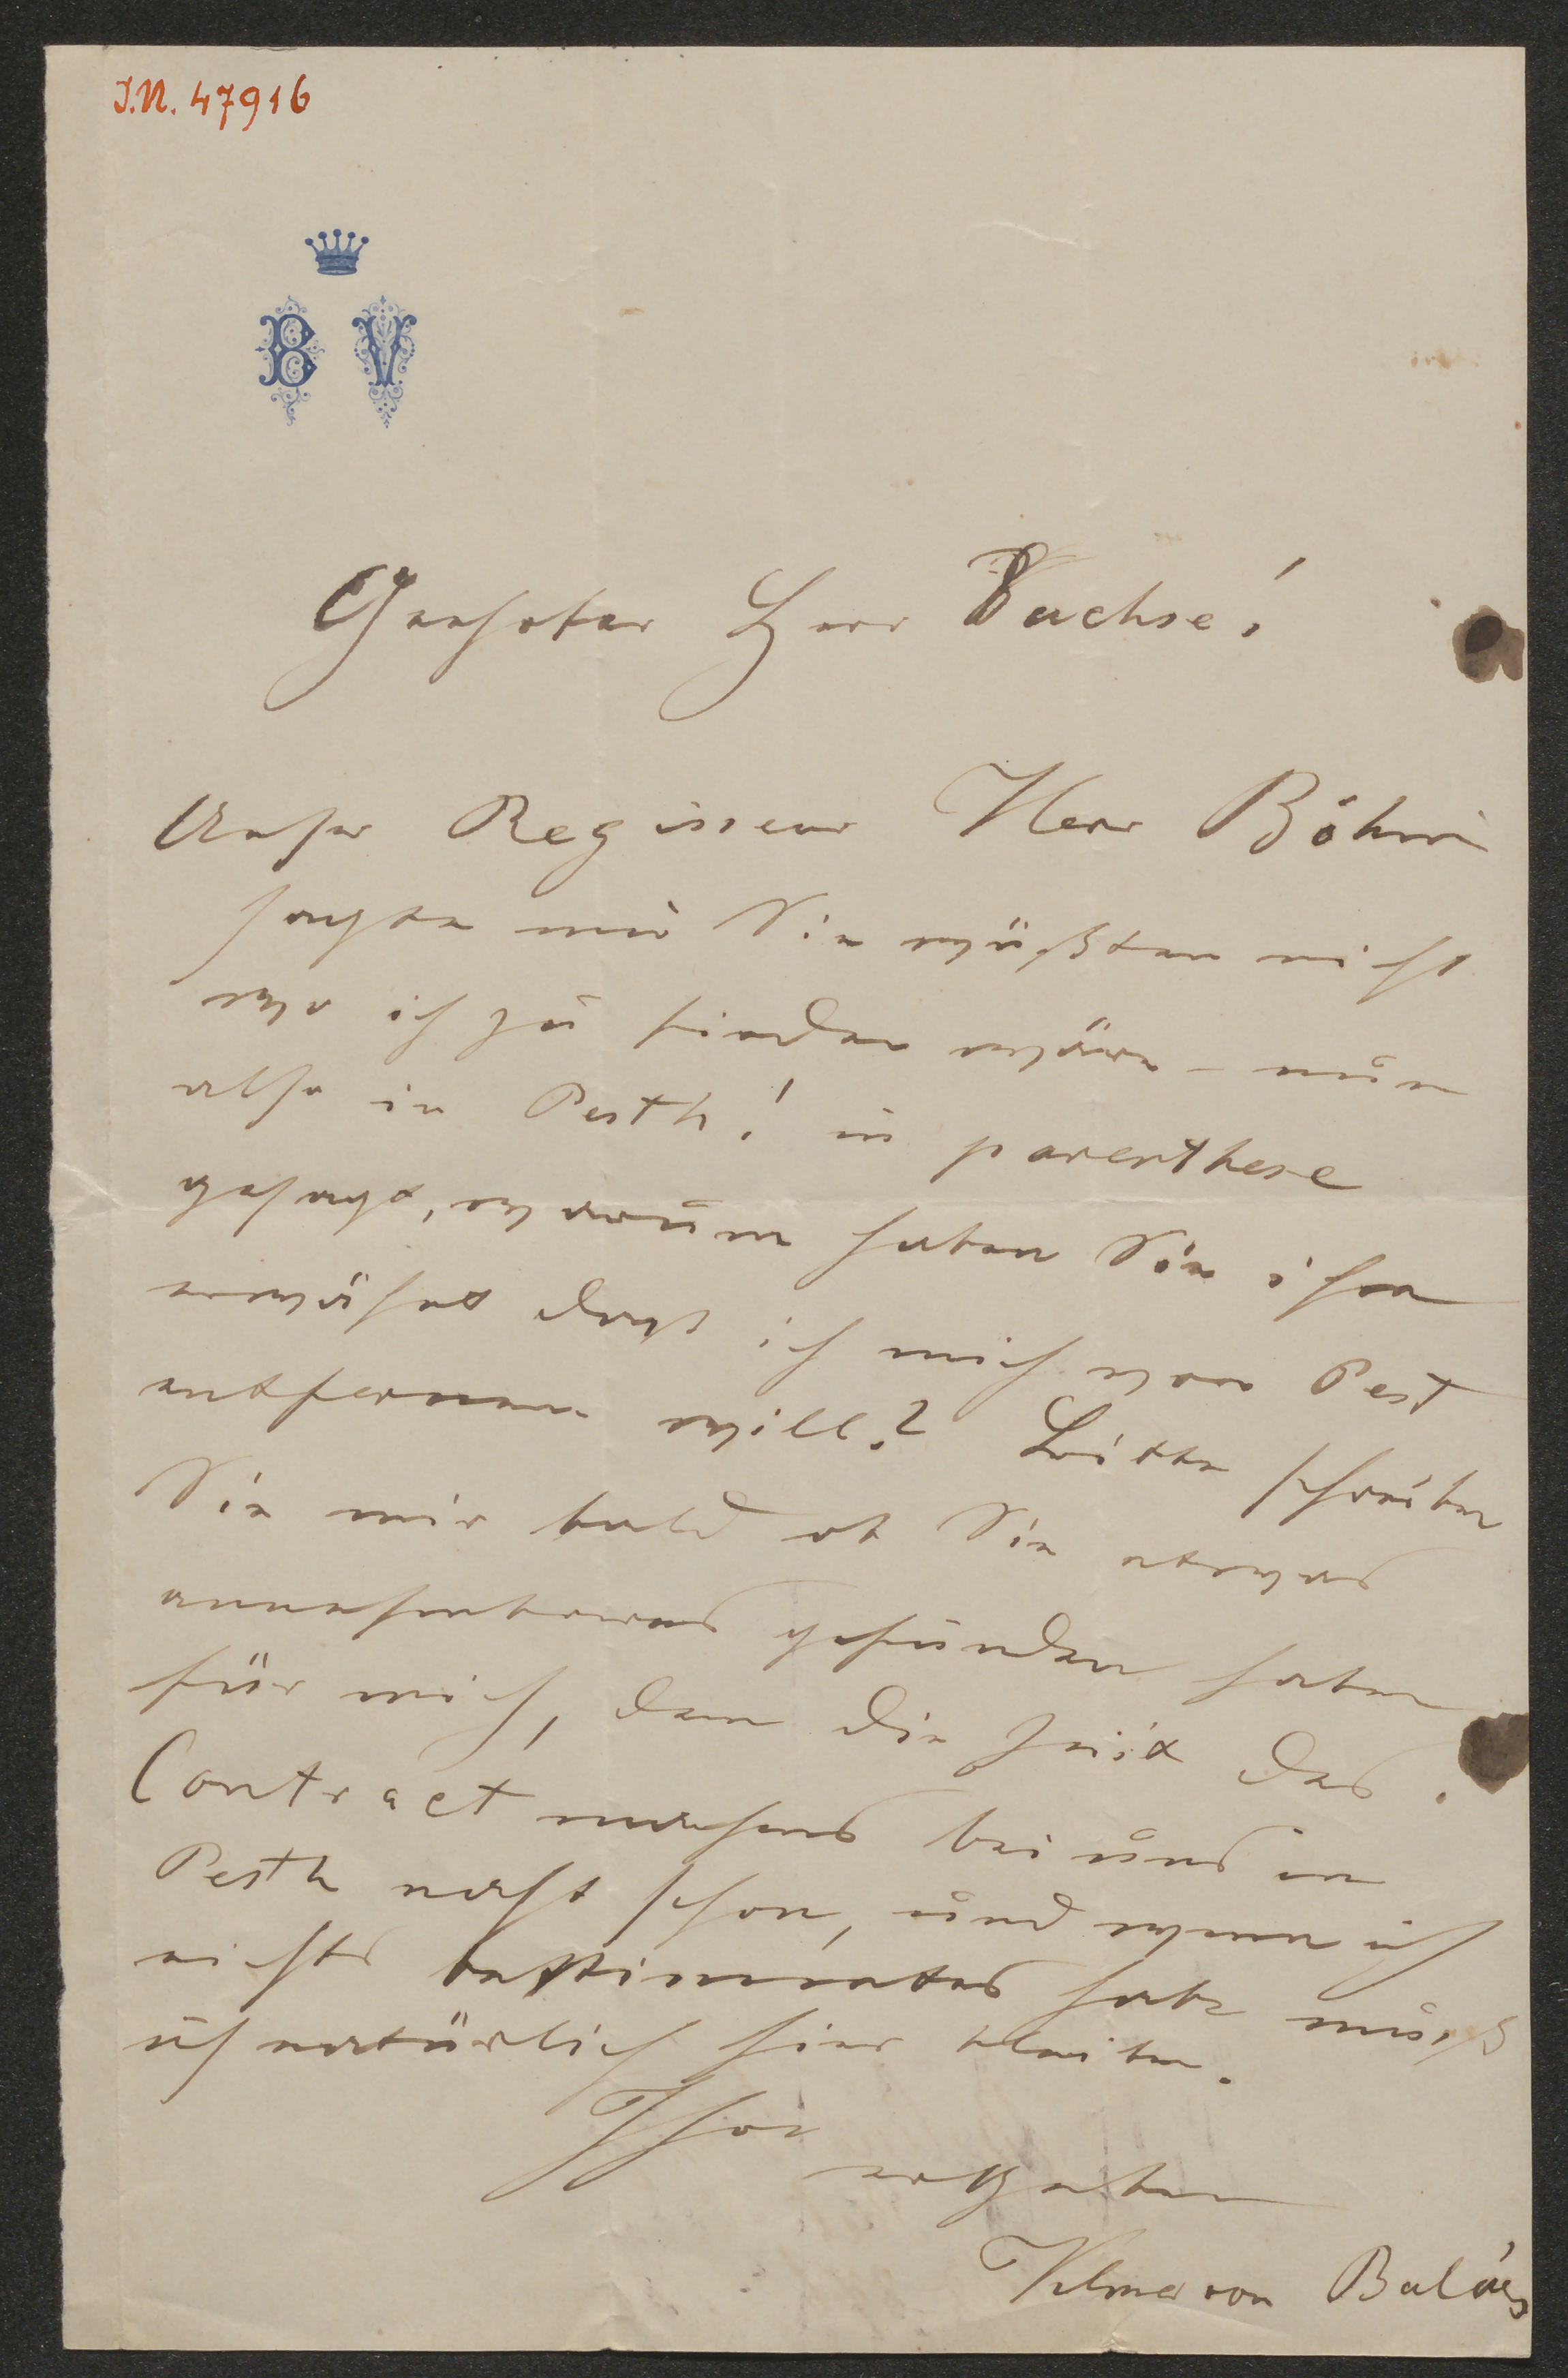 I.N. 47916
B V
Geehrter Herr Fuchse!
Unser Regisseur Herr Böhm
sagte mir Sie wüßten nicht
wo ich zu finden wäre – nun
also in Pesth! in parenthese
gesagt, warum haben Sie ihm
erwähnt daß ich mich von Pest
entfernen will? Bitte schreiben
Sie mir bald ob Sie etwas
annehmbares gefunden haben
für mich, denn die Zeit des
Contractmachens bei uns in
Pesth naht schon, und wenn ich
nichts bestimmtes habe muß
ich natürlich hier bleiben.
Ihre
ergebene
Vilma von Balázs